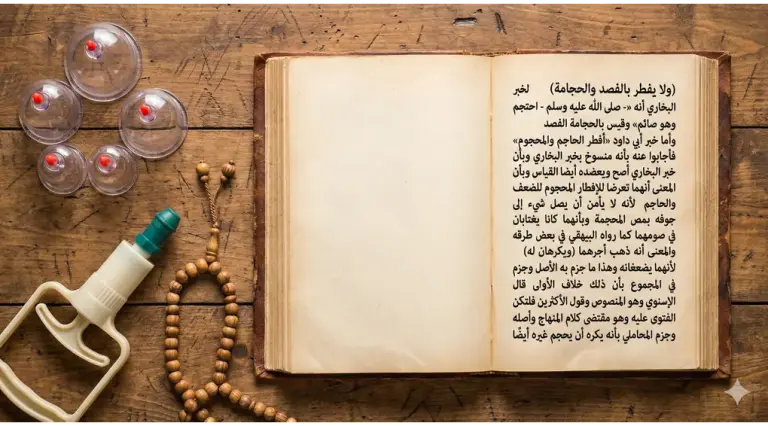 (ولا يفطر بالفصد والحجامة) لخبر
البخاري أنه «- صلى الله عليه وسلم - احتجم
وهو صائم» وقيس بالحجامة الفصد
وأما خبر أبي داود «أفطر الحاجم والمحجوم»
فأجابوا عنه بأنه منسوخ بخبر البخاري وبأن
خبر البخاري أصح ويعضده أيضا القياس وبأن
المعنى أنهما تعرضا للإفطار المحجوم للضعف
والحاجم لأنه لا يأمن أن يصل شيء إلى
جوفه بمص المحجمة وبأنهما كانا يغتابان
في صومهما كما رواه البيهقي في بعض طرقه
والمعنى أنه ذهب أجرهما (ويكرهان له)
لأنهما يضعفانه وهذا ما جزم به الأصل وجزم
في المجموع بأن ذلك خلاف الأولى قال
الإسنوي وهو المنصوص وقول الأكثرين فلتكن
الفتوى عليه وهو مقتضى كلام المنهاج وأصله
وجزم المحاملي بأنه يكره أن يحجم غيره أيضًا